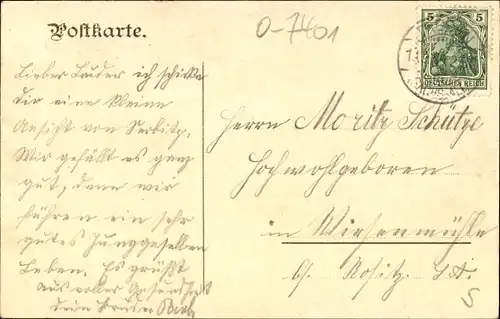 Postkarte.
O-7401
5 5
DEUTSCHES REICH
Lieber Bruder ich schicke
Dir eine kleine
Ansicht von Serbitz.
Mir gefällt es ganz
gut, denn wir
führen ein sehr
gutes Junggesellen
Leben. Es grüßt
aus voller Gesundheit
dein Bruder
Herrn Moritz Schütze
Hochwohlgeboren
in Wiesenmühle
b/. Rositz. S.A.
S